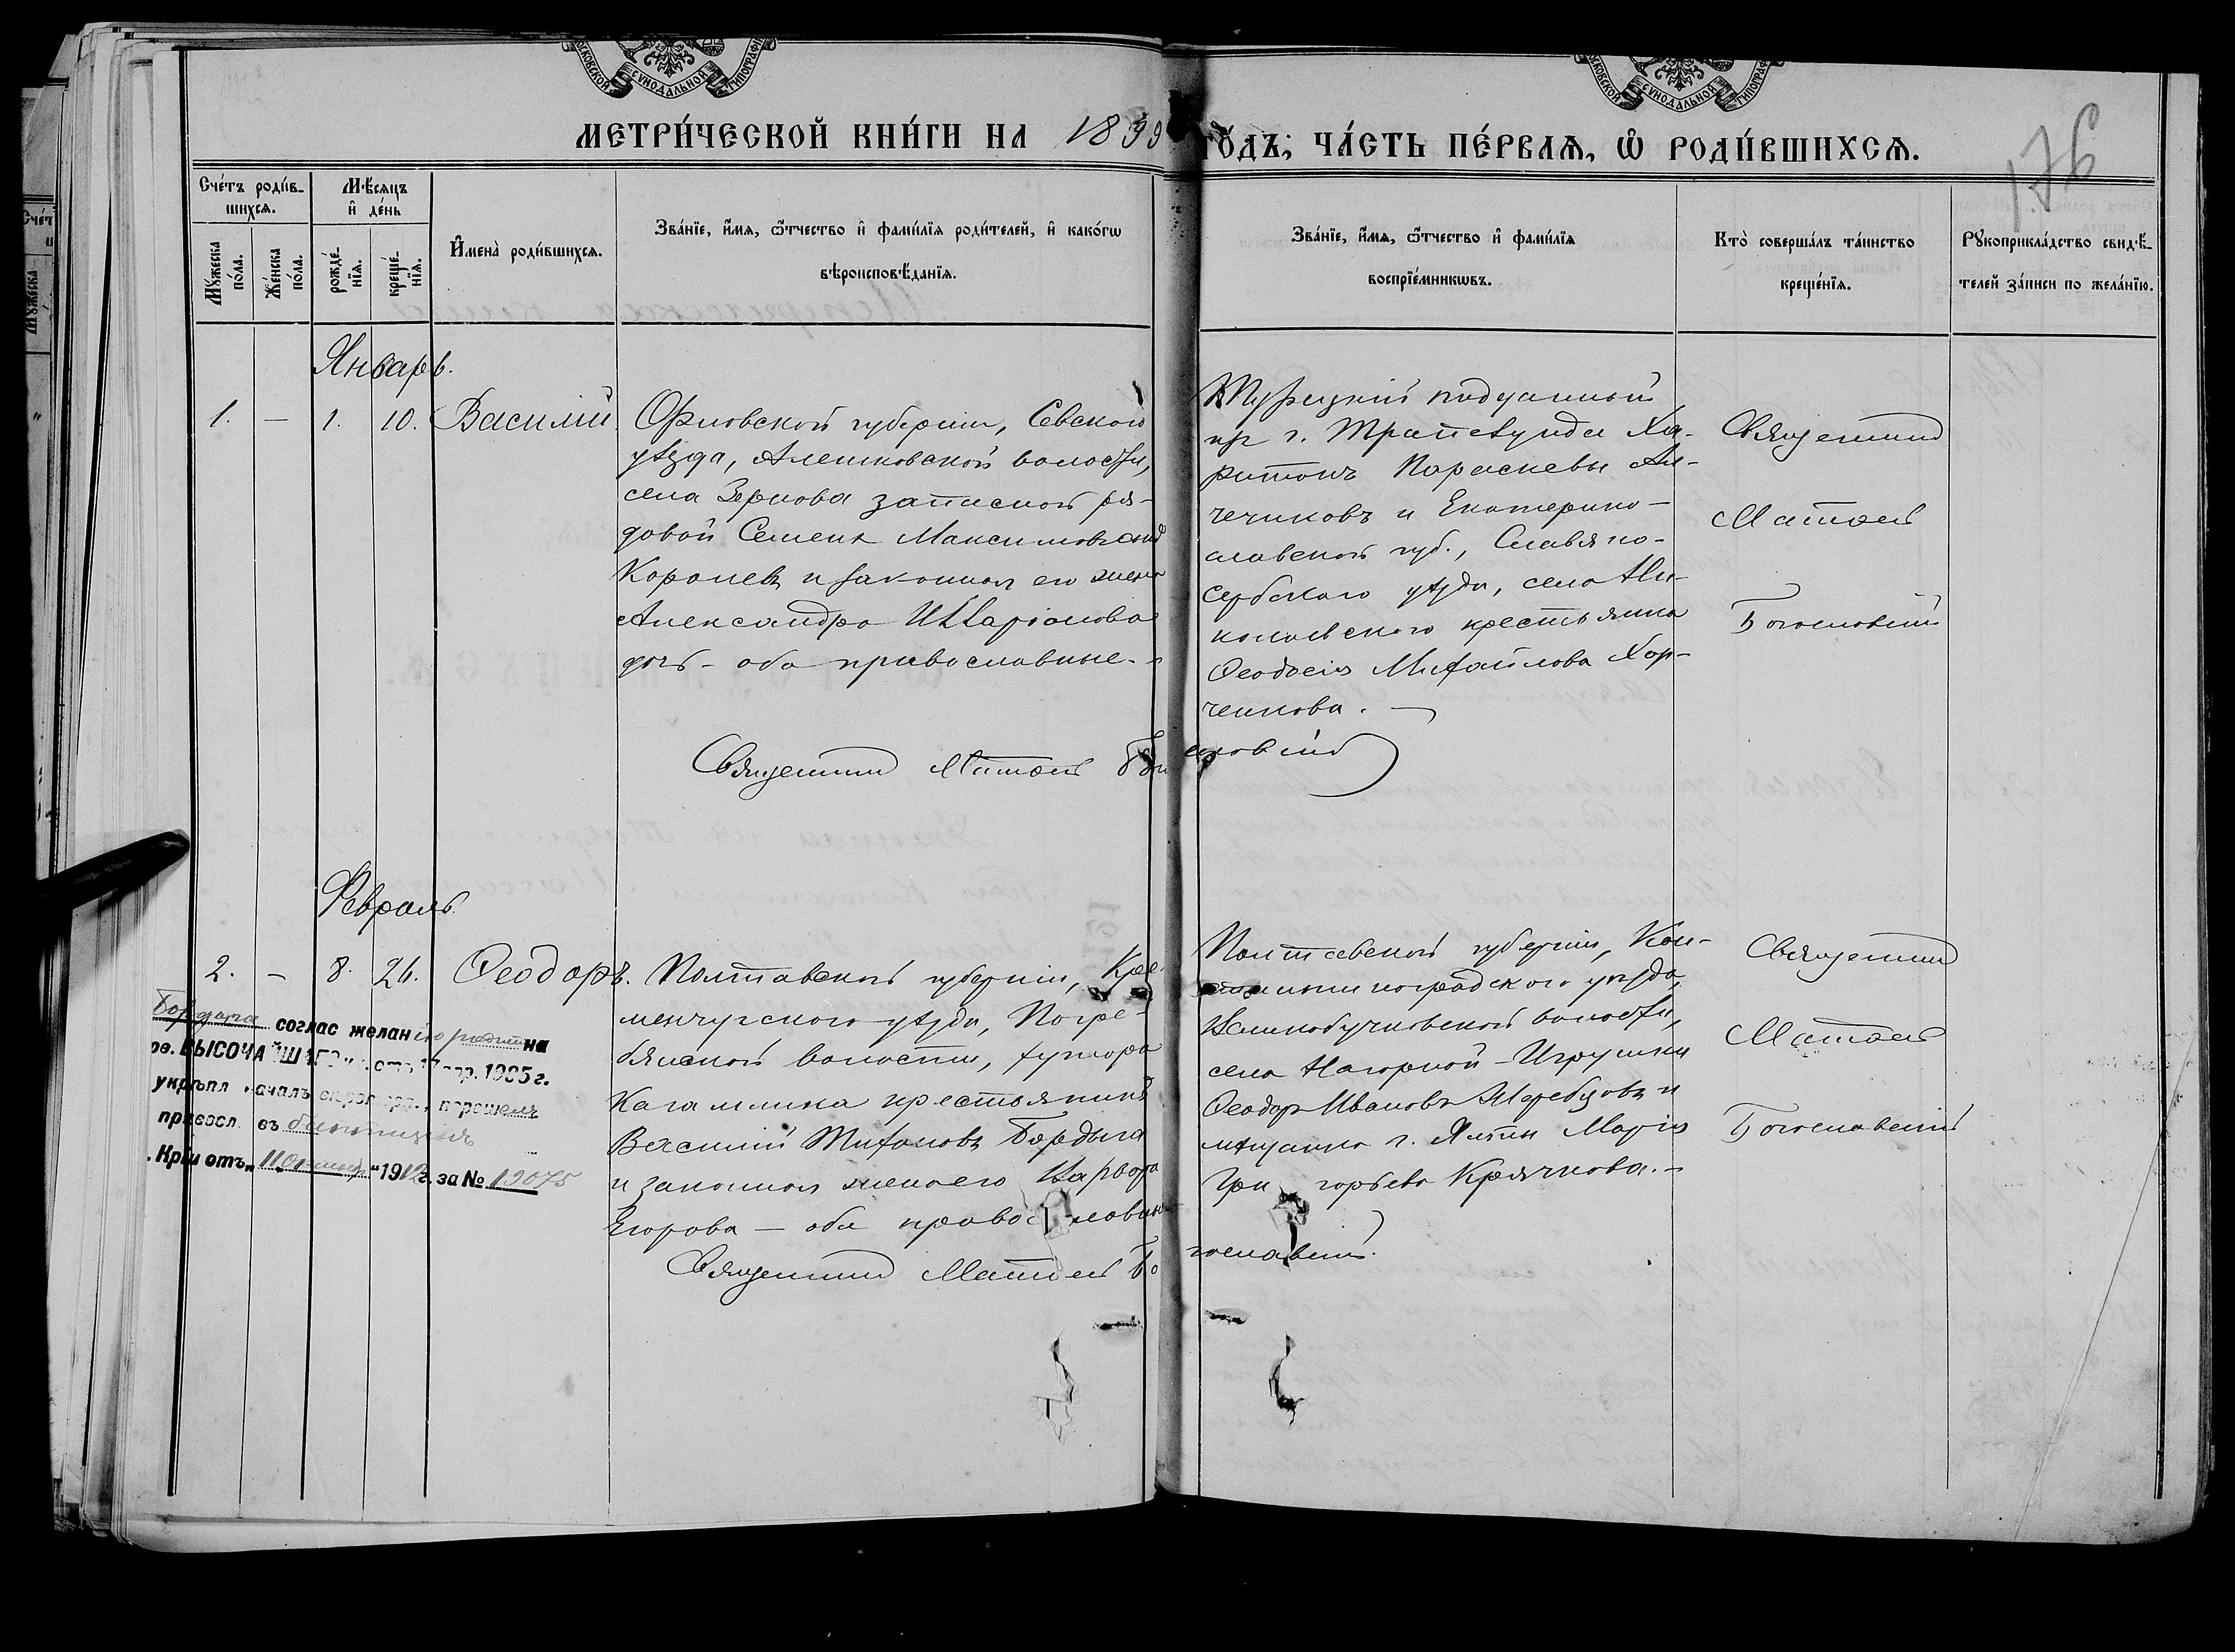 МОСКОВСКОЙ СУНОДАЛЬНОЙ ТИПОГРАФ
МОСКОВСКОЙ СУНОДАЛЬНОЙ ТИПОГРАФ
МЕТРИ́ЧЕСКОЙ КНИ́ГИ НА 1899 ГО́ДЪ; ЧА́СТЬ ПЕ́РВАѦ, Ѡ҆ РОДИ́ВШИХСѦ.
176
Сче́тъ роди́в-
шихсѧ.
Мꙋ́жеска
по́ла.
Же́нска
по́ла.
Мѣ́сѧцъ
и҆ де́нь
рожде́-
нїѧ.
креще́-
нїѧ.
И҆мена̀ роди́вшихсѧ.
Зва́нїе, и҆́мѧ, ѻ҆́тчество и҆ фами́лїѧ роди́телей, и҆ како́гѡ
вѣроисповѣ́данїѧ.
Зва́нїе, и҆́мѧ, ѻ҆́тчество и҆ фами́лїѧ
воспрїе́мникѡвъ.
Кто̀ соверша́лъ та́инство
креще́нїѧ.
Рꙋкоприкла́дство свидѣ́-
телей за́писи по жела́нїю.
Январь.
1. — 1. 10. Василій.
Орловской губерніи, Севскаго
уѣзда, Алешковской волости,
села Зернова запасной ря-
довой Семенъ Максимовъ
Королевъ и законная его жена
Александра Илларіонова
дочь - оба православные.
Турецкій подданный
изъ г. Трапезунда Ха-
ритонъ Параскевы
и Екатерино-
славской губ., Славяно-
сербского уѣзда, села Ни-
колаевского крестьянка
Ѳеодосія Михайлова Хор-
ченкова. —
Священникъ
Матѳей
Богословскій
Священникъ Матѳей Богословскій
Февраль.
2. — 8. 26. Ѳеодоръ.
Полтавской губерніи, Кре-
менчугского уѣзда, Погре-
бянской волости, хутора
Кагамлика крестьянинъ
Василій Тихоновъ Бордыга
и законная жена его Варвара
Егорова — оба православные
Полтавской губерніи, Кон-
стантиноградского уѣзда,
села Нагорной-
Ѳеодоръ Ивановъ Жеребцовъ и
мѣщанка г. Ялты Марія
Григорьева Крячкова. -
Священникъ
Матѳей
Богословскій
Священникъ Матѳей Богославскій.
Бордыга соглас желанію родит на
ов. ВЫСОЧАЙШАГО ук. отъ 17 апр. 1905 г.
укрѣпл началъ вѣротерп., перешелъ
правосл. въ
. Крш отъ „11 октября“ 1912 г. за № 19075